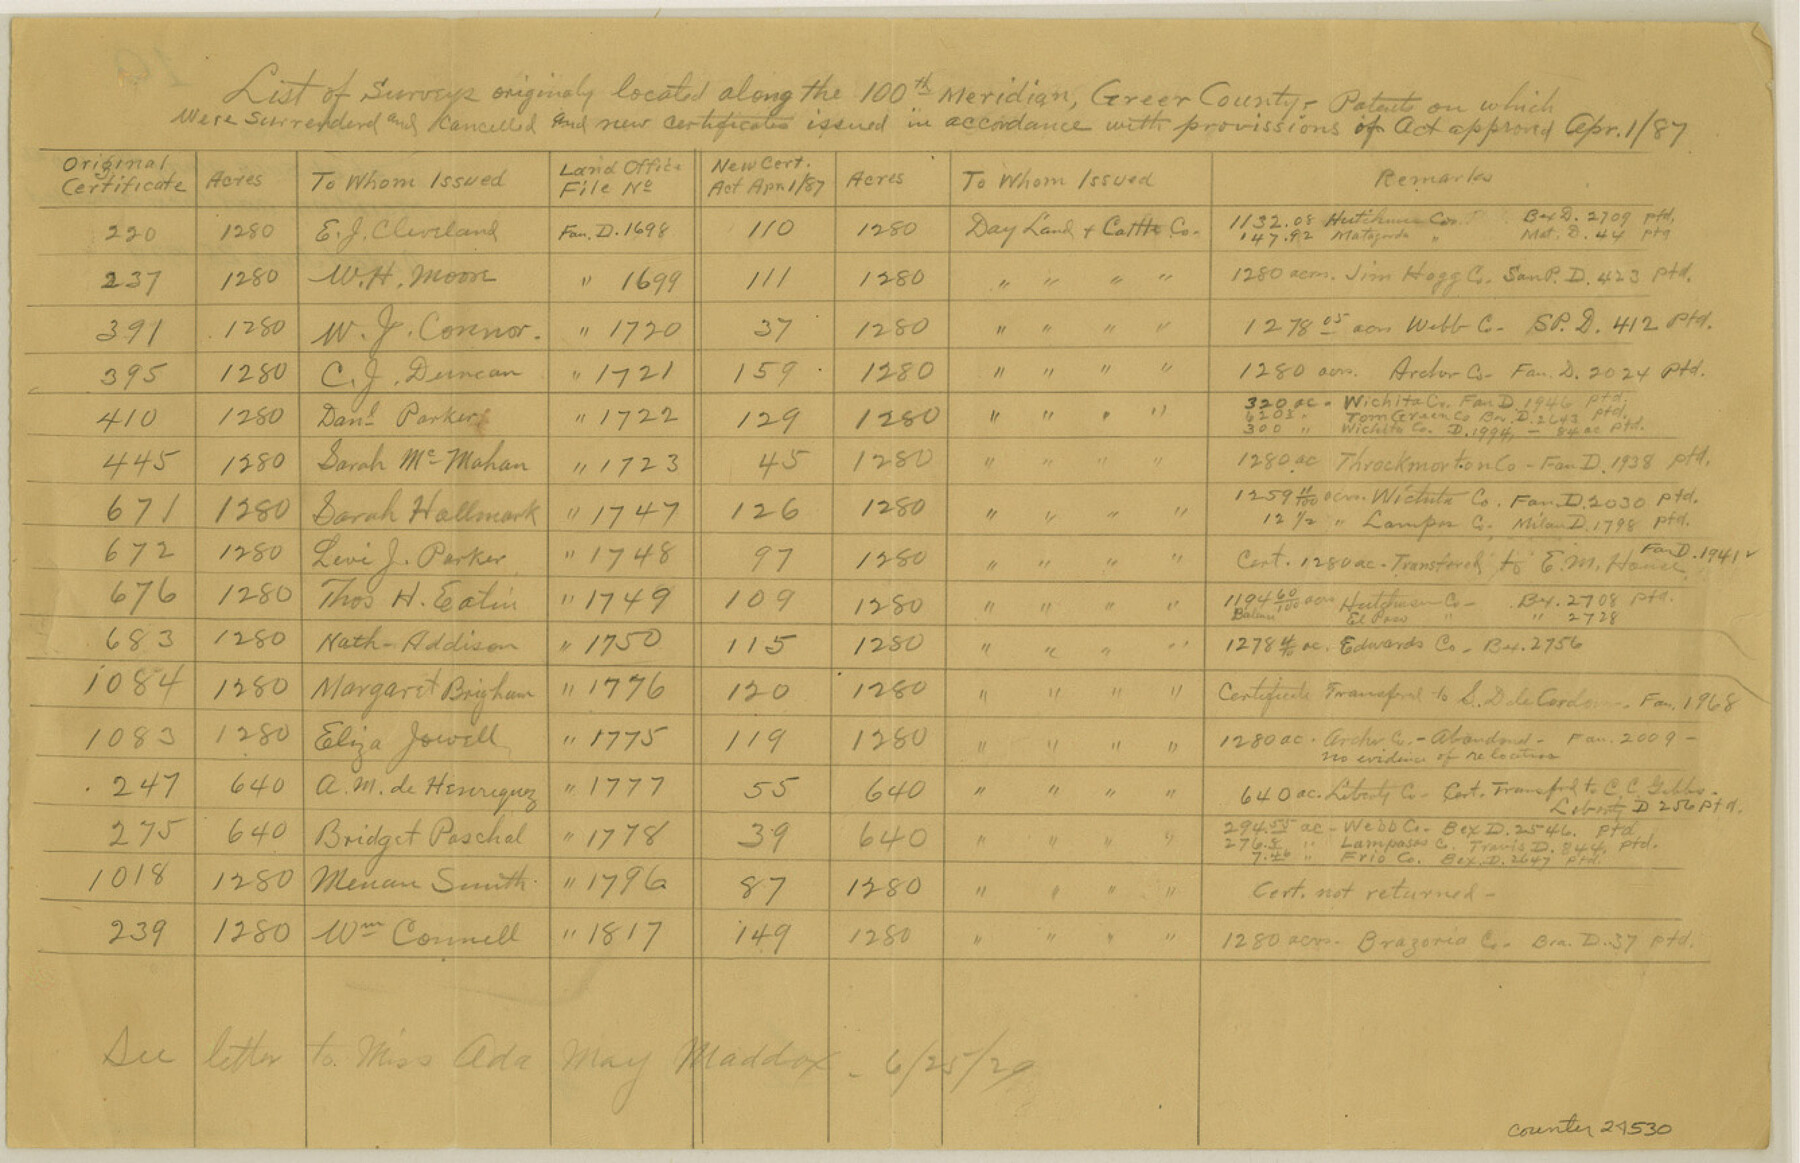 List of Surveys originaly located along the 100th Meridian, Greer County, - Patents on which
Were Surrenderd and Cancelled and new certificates issued in accordance with provissions of Act approved Apr. 1/87
Original Certificate | Acres | To Whom Issued | Land Office File No | New Cert. Act Apr. 1/87 | Acres | To Whom Issued | Remarks
220 | 1280 | E. J. Cleveland | Fan. D. 1698 | 110 | 1280 | Day Land & Cattle Co. | 1132.08 Hutchinson Co. Bex D. 2709 ptd.
147.92 Matagorda " Mat. D. 44 ptd
237 | 1280 | W. H. Moore | " 1699 | 111 | 1280 | " " " " | 1280 acres. Jim Hogg Co. San P. D. 423 Ptd.
391 | 1280 | W. J. Connor. | " 1720 | 37 | 1280 | " " " " | 1278 05 acres Webb Co- SP. D. 412 Ptd.
395 | 1280 | C. J. Duncan | " 1721 | 159 | 1280 | " " " " | 1280 acrs. Archer Co- Fan. D. 2024 Ptd.
410 | 1280 | Danl Parker | " 1722 | 129 | 1280 | " " " " | 320 ac - Wichita Co. Fan D. 1946 Ptd.
6203 " Tom Green Co Bex. D. 2643 Ptd.
300 " Wichita Co. D. 1994, - 84 ac Ptd.
445 | 1280 | Sarah McMahan | " 1723 | 45 | 1280 | " " " " | 1280 ac Throckmorton Co - Fan D. 1938 Ptd.
671 | 1280 | Sarah Hallmark | " 1747 | 126 | 1280 | " " " " | 1259 11/100 acrs. Wichita Co. Fan. D. 2030 Ptd.
12 1/2 " Lampas Co, Milam D. 1798 Ptd.
672 | 1280 | Levi J. Parker | " 1748 | 97 | 1280 | " " " " | Cert. 1280 ac. Transfered to E. M. House Fan D. 1941
676 | 1280 | Thos H. Eatin | " 1749 | 109 | 1280 | " " " " | 1194 60/100 acrs Hutchinson Co- Bex. 2708 Ptd.
Balance El Paso " " 2728
683 | 1280 | Nath- Addison | " 1750 | 115 | 1280 | " " " " | 1278 4/10 ac. Edwards Co - Bex. 2756
1084 | 1280 | Margaret Brigham | " 1776 | 120 | 1280 | " " " " | Certificate Transferd to S. D de Cordova. Fan. 1968
1083 | 1280 | Eliza Jowell | " 1775 | 119 | 1280 | " " " " | 1280 ac. Archer Co. - Abandoned - Fan. 2009 -
no evidence of relocation
247 | 640 | A. M. de Henriquez | " 1777 | 55 | 640 | " " " " | 640 ac. Liberty Co- Cert. Transferd to C. C. Gibbs.
Liberty D 256 Ptd.
275 | 640 | Bridget Paschal | " 1778 | 39 | 640 | " " " " | 294.55 ac - Webb Co- Bex D. 2546. Ptd.
276.5 " Lampasas Co. Travis D. 844, Ptd.
7.46 " Frio Co. Bex. D. 2647 Ptd.
1018 | 1280 | Menan Smith | " 1796 | 87 | 1280 | " " " " | Cert. not returned -
239 | 1280 | Wm Connell | " 1817 | 149 | 1280 | " " " " | 1280 acrs. Brazoria Co- Bra. D. 37 Ptd.
See letter to Miss Ada May Maddox - 6/25/29
counter 24530